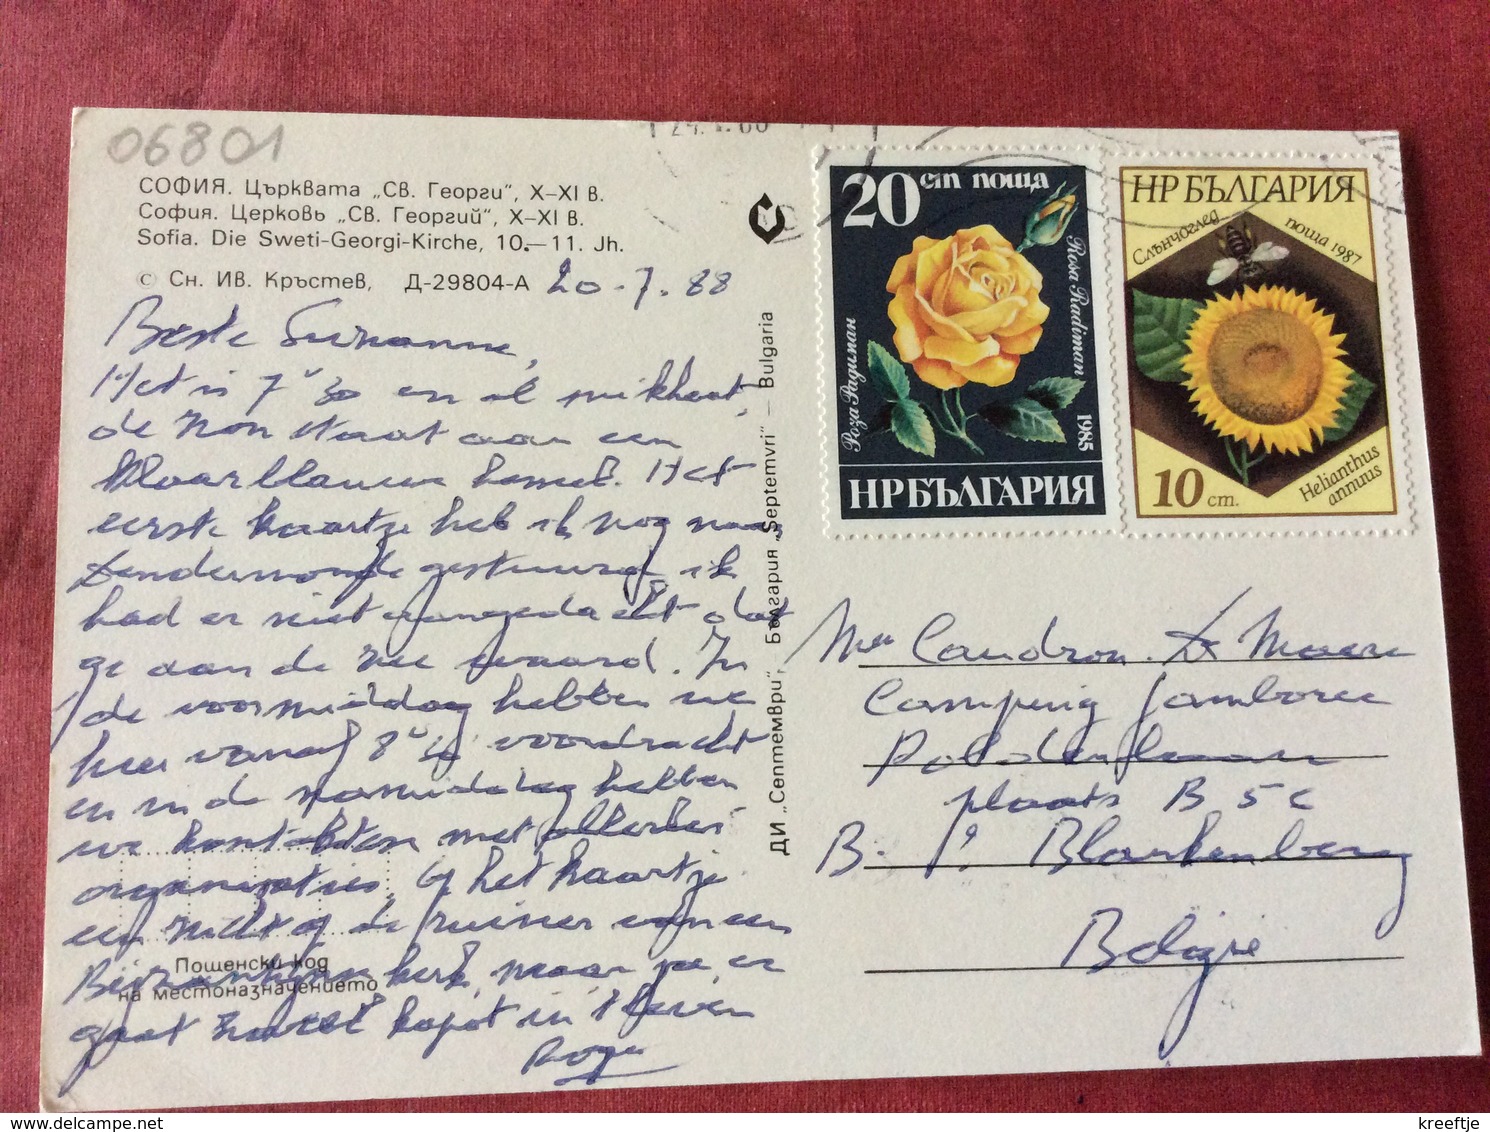 06801
СОФИЯ. Църквата „Св. Георги", X–XI в.
София. Церковь „Св. Георгий", X–XI в.
Sofia. Die Sweti-Georgi-Kirche, 10.–11. Jh.
© Сн. Ив. Кръстев, Д-29804-А 20-7.88
Beste Suzanne,
Het is 7u30 en al snikheet,
de zon staat aan een
klaarblauwe hemel. Het
eerste kaartje heb ik nog naar
Dendermonde gestuurd, ik
had er niet aangedacht dat
ge aan de zee waard. In
de voormiddag hebben we
hier vanaf 8u voordracht
en in de namiddag hebben
we kontakten met allerlei
organizaties. Op het kaartje
een zicht op de ruines van een
Bizantijnse kerk, maar ja, er
gaat zoveel kapot in 't leven
Roger
Пощенски код
на местоназначението
ДИ „Септември", България „Septemvri" – Bulgaria
20 ст поща
Роза Радиман
Rosa Radiman
1985
НР БЪЛГАРИЯ
НР БЪЛГАРИЯ
Слънчоглед
поща 1987
10 ст.
Helianthus
annuus
Mw Caudron-De Maere
Camping Jamboree
Polderlaan
plaats B 5 c
B- Blankenberg
België
kreeftje